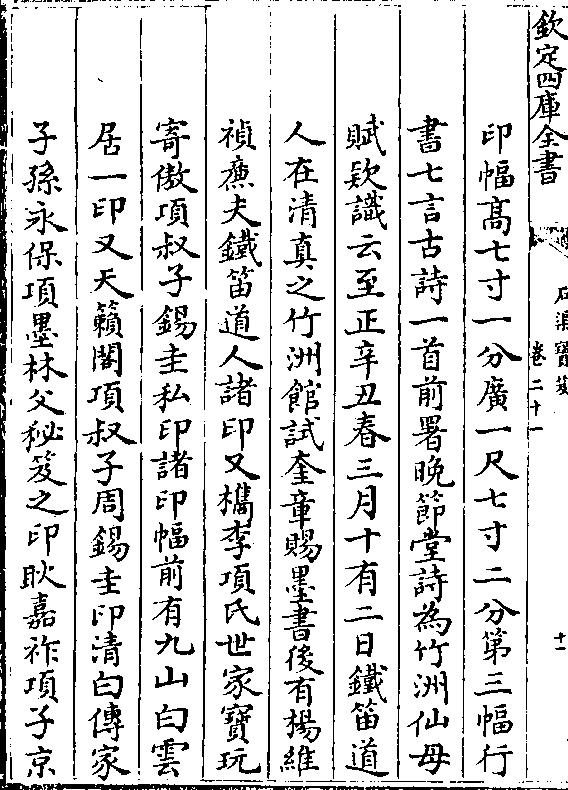 欽定四庫全書
石渠寶笈
卷二十一
十一
印幅髙七寸一分廣一尺七寸二分第三幅行
書七言古詩一首前署晚節堂詩為竹洲仙母
賦欵識云至正辛丑春三月十有二日鐵笛道
人在清真之竹洲館試奎章賜墨書後有楊維
禎㢘夫鐵笛道人諸印又檇李項氏世家寶玩
寄傲項叔子錫圭私印諸印幅前有九山白雲
居一印又天籟閣項叔子周錫圭印清白傳家
子孫永保項墨林父秘笈之印耿嘉祚項子京